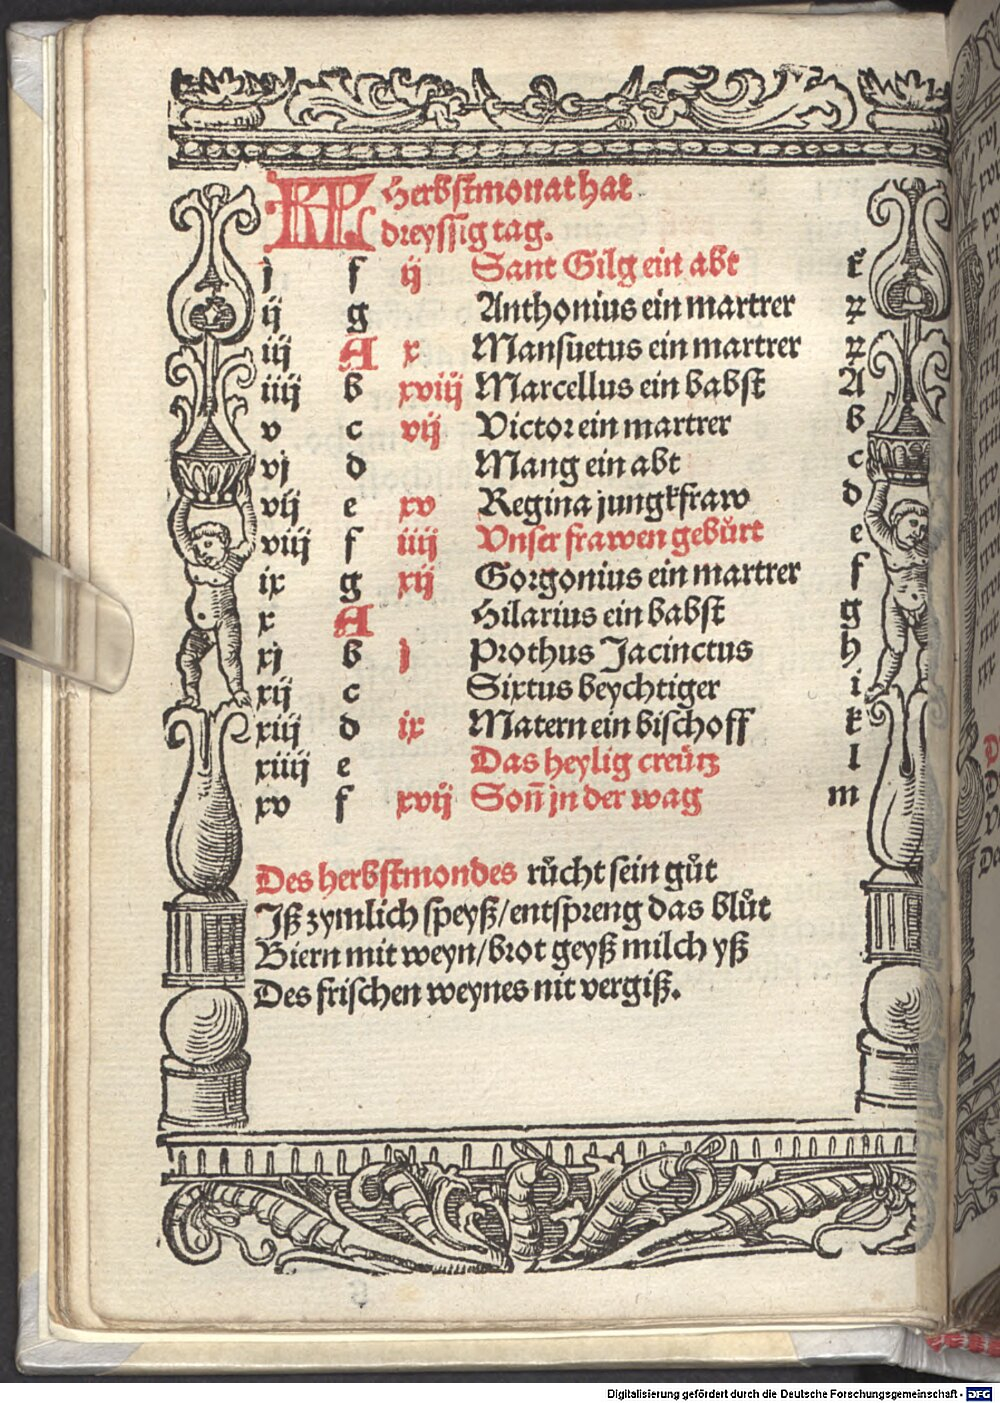 KL Herbstmonat hat
dreyssig tag.
j f ij Sant Gilg ein abt k
ij g Anthonius ein martrer ꝛ
iij A x Mansuetus ein martrer ꝛ
iiij b xviij Marcellus ein babst A
v c vij Victor ein martrer b
vj d Mang ein abt c
vij e xv Regina jungkfraw d
viij f iiij Vnser frawen gebůrt e
ix g xij Gorgonius ein martrer f
x A Hilarius ein babst g
xj b j Prothus Jacinctus h
xij c Sixtus beychtiger i
xiij d ix Matern ein bischoff k
xiiij e Das heylig creütz l
xv f xvij Son̄ jn der wag m
Des herbstmondes růcht sein gůt
Jß zymlich speyß/entspreng das blůt
Biern mit weyn/brot geyß milch yß
Des frischen weynes nit vergiß.
Digitalisierung gefördert durch die Deutsche Forschungsgemeinschaft - DFG